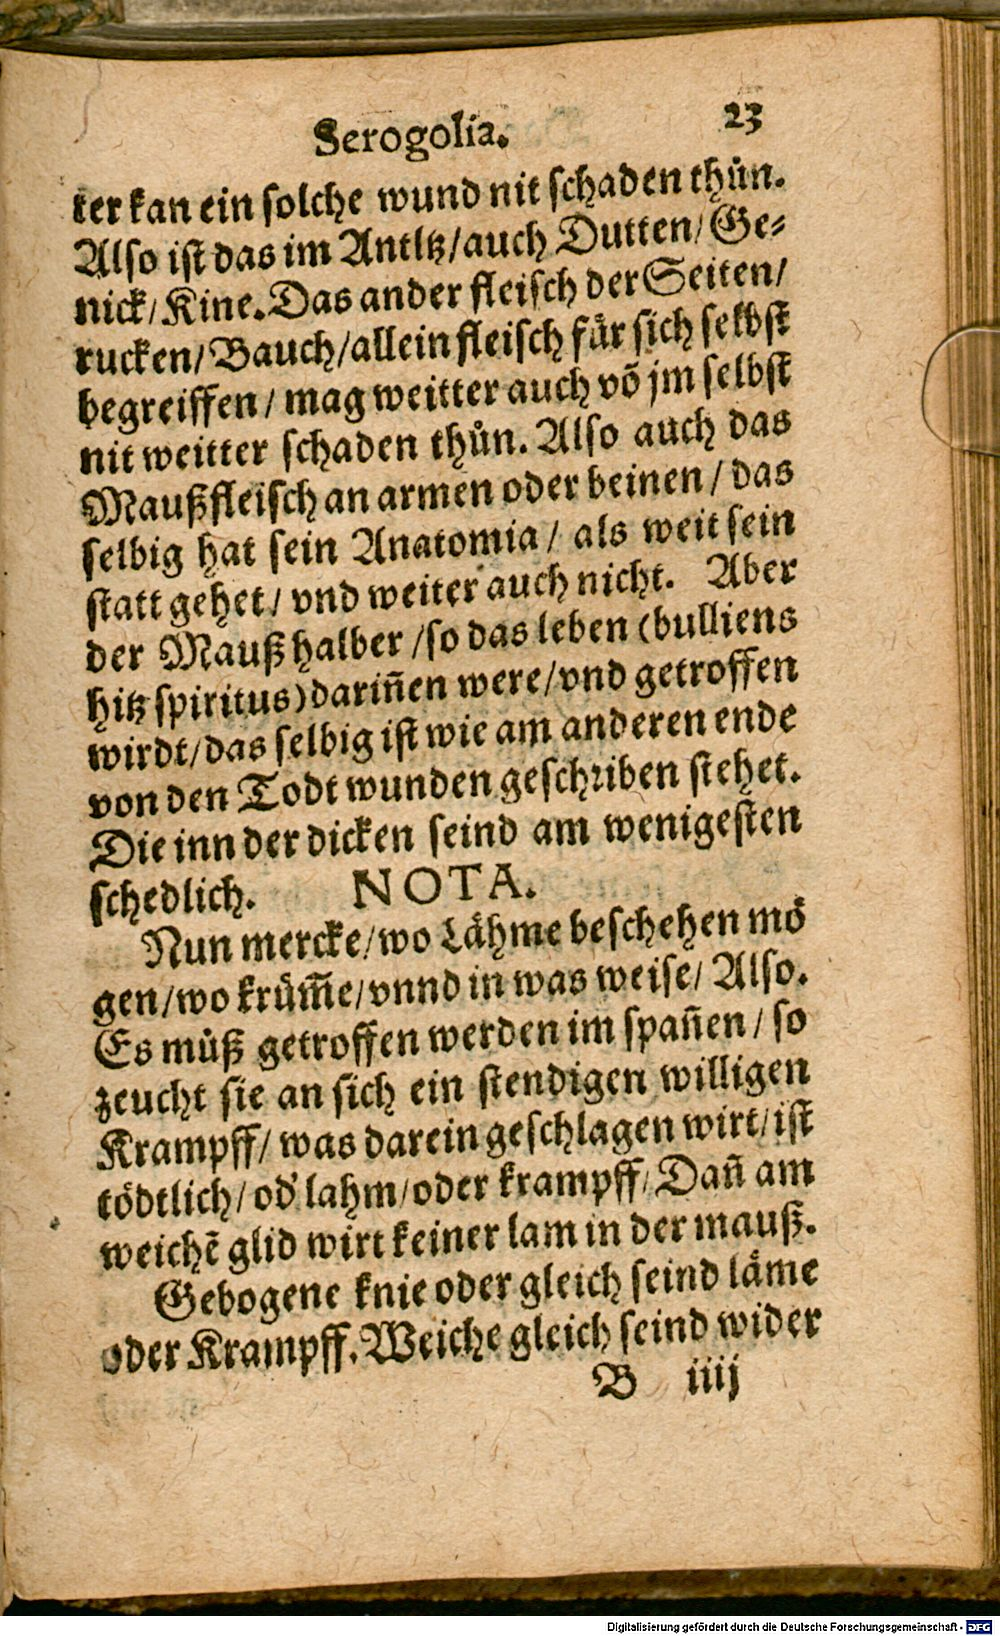 Serogolia. 23
ter kan ein solche wund nit schaden thůn.
Also ist das im Antltz/auch Dutten/Ge⸗
nick/Kine. Das ander fleisch der Seiten/
rucken/Bauch/allein fleisch fůr sich selbst
begreiffen/mag weitter auch võ jm selbst
nit weitter schaden thůn. Also auch das
Maußfleisch an armen oder beinen/das
selbig hat sein Anatomia/ als weit sein
statt gehet/vnd weiter auch nicht. Aber
der Mauß halber/so das leben (bulliens
hitz spiritus) dariñen were/vnd getroffen
wirdt/das selbig ist wie am anderen ende
von den Todt wunden geschriben stehet.
Die inn der dicken seind am wenigesten
schedlich. NOTA.
Nun mercke/wo Låhme beschehen mö
gen/wo krüm̃e/vnnd in was weise/Also.
Es můß getroffen werden im spañen/so
zeucht sie an sich ein stendigen willigen
Krampff/was darein geschlagen wirt/ist
tödtlich/od' lahm/oder krampff/Dañ am
weichẽ glid wirt keiner lam in der mauß.
Gebogene knie oder gleich seind låme
oder Krampff. Weiche gleich seind wider
B iiij
Digitalisierung gefördert durch die Deutsche Forschungsgemeinschaft - DFG